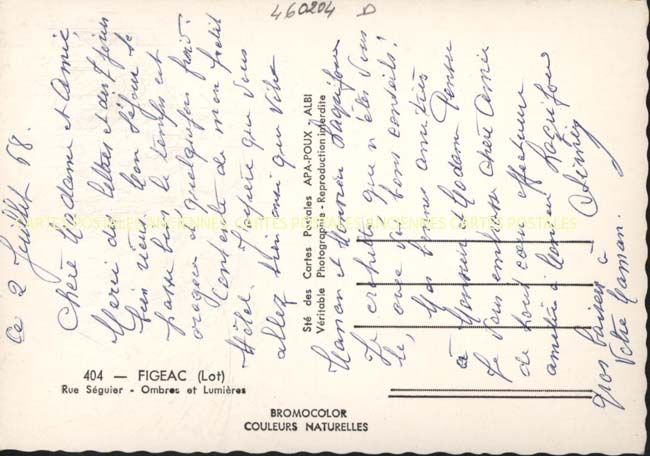 460204 D
ce 2 Juillet 68.
Chère Madame et Amie,
Merci des lettres et des 7 pièces
bien reçu. Bon séjour se
passe bien, le temps est
orageux et quelquefois froid.
Contente de mon petit
Hôtel. J'espère que vous
allez bien ainsi que votre
Maman et Monsieur
Je que n'êtes vous
là, avec vos bons conseils!
Mes bonnes amitiés
à Monsieur Madame
Je vous embrasse chère Amie
de tout cœur affectueuse
amitiés à Monsieur
gros baisers à
votre Maman.
Sté des Cartes Postales APA-POUX _ ALBI
Véritable Photographie - Reproduction interdite
404 — FIGEAC (Lot)
Rue Séguier - Ombres et Lumières
BROMOCOLOR
COULEURS NATURELLES
CARTES POSTALES ANCIENNES CARTES POSTALES ANCIENNES CARTES POSTALES